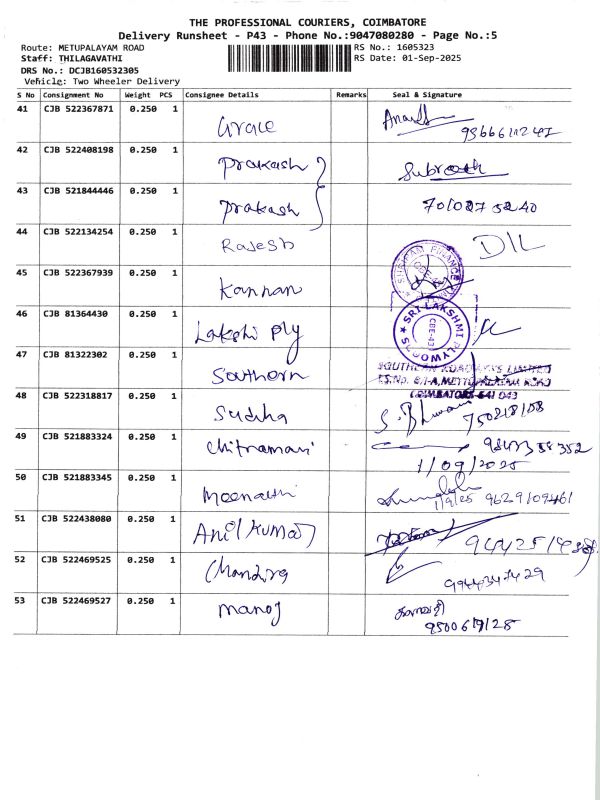 THE PROFESSIONAL COURIERS, COIMBATORE
Delivery Runsheet - P43 - Phone No.:9047080280 - Page No.:5
Route: METUPALAYAM ROAD RS No.: 1605323
Staff: THILAGAVATHI RS Date: 01-Sep-2025
DRS No.: DCJB160532305
Vehicle: Two Wheeler Delivery
S No Consignment No Weight PCS Consignee Details Remarks Seal & Signature
41 CJB 522367871 0.250 1 Grace
42 CJB 522408198 0.250 1 Prakash
43 CJB 521844446 0.250 1 Prakash 7010275240
44 CJB 522134254 0.250 1 Rajesh D/L
45 CJB 522367939 0.250 1 Kannan
46 CJB 81364430 0.250 1 Lakshi Ply SRI LAKSHMI PLYWOODS CBE-43
47 CJB 81322302 0.250 1 Southern SOUTHERN ROADWAYS LIMITED
COIMBATORE-641 043
48 CJB 522318817 0.250 1 Sudha
49 CJB 521883324 0.250 1 Chitramani
1/09/2025
50 CJB 521883345 0.250 1 Meenakshi 1/9/25 9629109461
51 CJB 522438080 0.250 1 Anil Kumar
52 CJB 522469525 0.250 1 Chandra
53 CJB 522469527 0.250 1 Manoj
9500679128